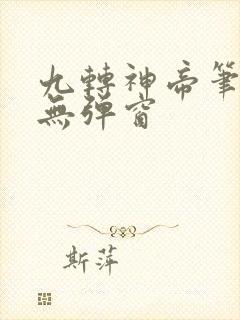 九轉神帝筆
無彈窗
斯萍